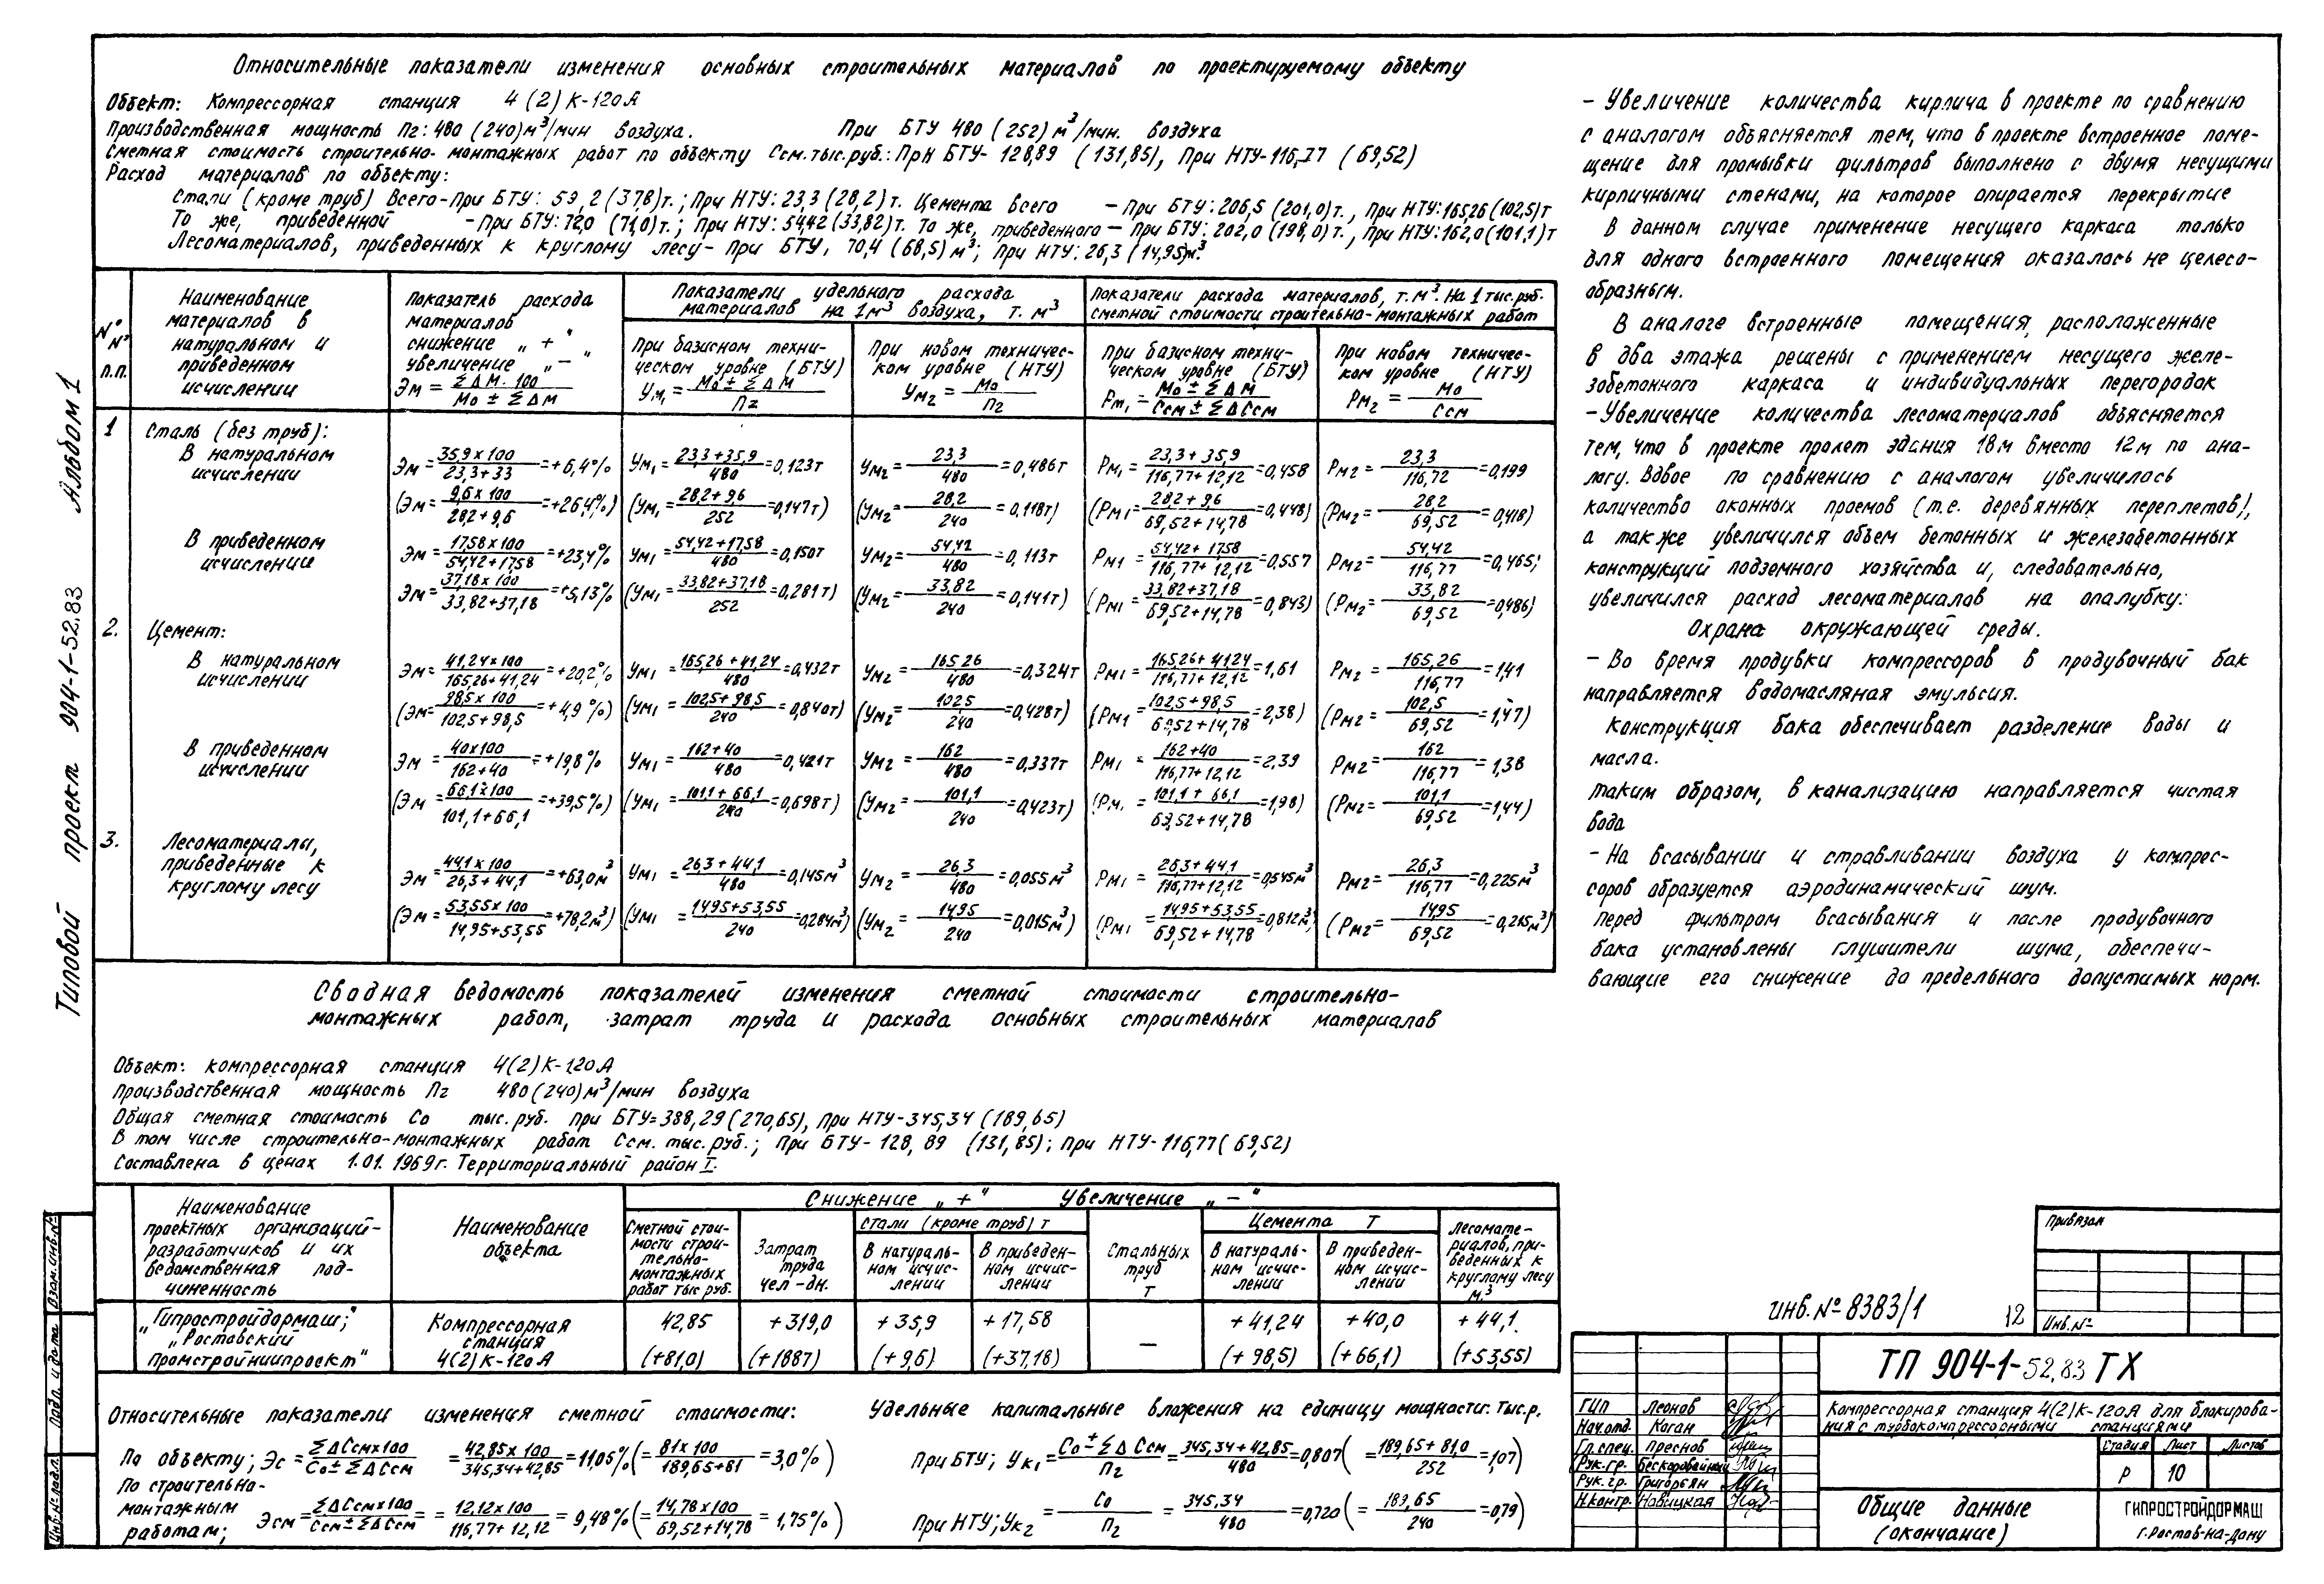 Относительные показатели изменения основных строительных материалов по проектируемому объекту
Объект: Компрессорная станция 4(2)К-120А
Производственная мощность Пг: 480 (240) м³/мин воздуха. При БТУ 480 (252) м³/мин. воздуха
Сметная стоимость строительно-монтажных работ по объекту Ссм.тыс.руб.: При БТУ- 128,89 (131,85), При НТУ-116,77 (69,52)
Расход материалов по объекту:
Стали (кроме труб) Всего-При БТУ: 59,2 (37,8)т.; При НТУ: 23,3 (28,2)т. Цемента всего - При БТУ: 206,5 (201,0)т., При НТУ: 165,26 (102,5)т
То же, приведенной - При БТУ: 72,0 (71,0)т.; При НТУ: 54,42 (33,82)т. То же, приведенного - При БТУ: 202,0 (198,0)т., При НТУ: 162,0 (101,1)т
Лесоматериалов, приведенных к круглому лесу - При БТУ, 70,4 (68,5) м³; При НТУ: 26,3 (14,95)м³.
№№ п.п.
Наименование материалов в натуральном и приведенном исчислении
Показатель расхода материалов снижение „+“ увеличение „-“ Эм = ΣΔМ·100 / Мо ± ΣΔМ
Показатели удельного расхода материалов на 1м³ воздуха, т. м³
При базисном техническом уровне (БТУ) Ум₁ = Мо ± ΣΔМ / Пг
При новом техническом уровне (НТУ) Ум₂ = Мо / Пг
Показатели расхода материалов, т. м³. На 1 тыс.руб. сметной стоимости строительно-монтажных работ
При базисном техническом уровне (БТУ) Рм₁ = Мо ± ΣΔМ / Ссм ± ΣΔСсм
При новом техническом уровне (НТУ) Рм₂ = Мо / Ссм
1 Сталь (без труб):
В натуральном исчислении Эм = 35,9 х 100 / 23,3+33 = +6,4% Ум₁ = 23,3+35,9 / 480 = 0,123т Ум₂ = 23,3 / 480 = 0,486т Рм₁ = 23,3+35,9 / 116,77+12,12 = 0,458 Рм2 = 23,3 / 116,72 = 0,199
(Эм = 9,6 х 100 / 28,2+9,6 = +26,4%) (Ум₁ = 28,2+9,6 / 252 = 0,147т) (Ум₂ = 28,2 / 240 = 0,118т) (Рм1 = 28,2+9,6 / 69,52+14,78 = 0,448) (Рм2 = 28,2 / 69,52 = 0,418)
В приведенном исчислении Эм = 17,58 х 100 / 54,42+17,58 = +23,4% Ум1 = 54,42+17,58 / 480 = 0,150т Ум2 = 54,42 / 480 = 0,113т Рм1 = 54,42+17,58 / 116,77+12,12 = 0,557 Рм2 = 54,42 / 116,77 = 0,465;
Эм = 37,18 х 100 / 33,82+37,18 = +5,13% (Ум1 = 33,82+37,18 / 252 = 0,281т) (Ум2 = 33,82 / 240 = 0,141т) (Рм1 = 33,82+37,18 / 69,52+14,78 = 0,843) (Рм2 = 33,82 / 69,52 = 0,486)
2. Цемент:
В натуральном исчислении Эм = 41,24х100 / 165,26+41,24 = +20,2% Ум1 = 165,26+41,24 / 480 = 0,432т Ум2 = 165,26 / 480 = 0,324т Рм1 = 165,26+41,24 / 116,77+12,12 = 1,61 Рм2 = 165,26 / 116,77 = 1,41
(Эм = 98,5 х 100 / 102,5+98,5 = +4,9%) (Ум1 = 102,5+98,5 / 240 = 0,840т) (Ум2 = 102,5 / 240 = 0,428т) (Рм1 = 102,5+98,5 / 69,52+14,78 = 2,38) (Рм2 = 102,5 / 69,52 = 1,47)
В приведенном исчислении Эм = 40х100 / 162+40 = +19,8% Ум1 = 162+40 / 480 = 0,421т Ум2 = 162 / 480 = 0,337т Рм1 = 162+40 / 116,77+12,12 = 2,39 Рм2 = 162 / 116,77 = 1,38
(Эм = 66,1х100 / 101,1+66,1 = +39,5%) (Ум1 = 101,1+66,1 / 240 = 0,698т) (Ум2 = 101,1 / 240 = 0,423т) (Рм1 = 101,1+66,1 / 69,52+14,78 = 1,98) (Рм2 = 101,1 / 69,52 = 1,44)
3. Лесоматериалы, приведенные к круглому лесу Эм = 44,1 х 100 / 26,3+44,1 = +63,0м³ Ум1 = 26,3+44,1 / 480 = 0,145м³ Ум2 = 26,3 / 480 = 0,055м³ Рм1 = 26,3+44,1 / 116,77+12,12 = 0,545м³ Рм2 = 26,3 / 116,77 = 0,225м³
(Эм = 53,55 х 100 / 14,95+53,55 = +78,2м³) (Ум1 = 14,95+53,55 / 240 = 0,284м³) (Ум2 = 14,95 / 240 = 0,015м³) (Рм1 = 14,95+53,55 / 69,52+14,78 = 0,812м³) (Рм2 = 14,95 / 69,52 = 0,215м³)
Сводная ведомость показателей изменения сметной стоимости строительно-
монтажных работ, затрат труда и расхода основных строительных материалов
Объект: компрессорная станция 4(2)К-120А
Производственная мощность Пг 480(240)м³/мин воздуха
Общая сметная стоимость Со тыс.руб. при БТУ=388,29(270,65), при НТУ-345,34 (189,65)
В том числе строительно-монтажных работ Ссм.тыс.руб.; При БТУ- 128,89 (131,85); при НТУ-116,77(69,52)
Составлена в ценах 1.01.1969г. Территориальный район I.
Наименование проектных организаций-разработчиков и их ведомственная подчиненность
Наименование объекта
Снижение „+“ Увеличение „-“
Сметной стоимости строительно-монтажных работ тыс руб.
Затрат труда чел-дн.
Стали (кроме труб) т
В натуральном исчислении
В приведенном исчислении
Стальных труб т
Цемента т
В натуральном исчислении
В приведенном исчислении
Лесоматериалов, приведенных к круглому лесу м.³
„Гипростройдормаш;“ „Ростовский Промстройниипроект“
Компрессорная станция 4(2)К-120А
42,85 +319,0 +35,9 +17,58 — +41,24 +40,0 +44,1
(+81,0) (+1887) (+9,6) (+37,18) (+98,5) (+66,1) (+53,55)
Относительные показатели изменения сметной стоимости:
По объекту; Эс = ΣΔСсмх100 / Со ± ΣΔСсм = 42,85 х 100 / 345,34+42,85 = 11,05% (= 81 х 100 / 189,65+81 = 3,0%)
По строительно-монтажным работам; Эсм = ΣΔСсмх100 / Ссм ± ΣΔСсм = = 12,12 х 100 / 116,77+12,12 = 9,48% (= 14,78 х 100 / 69,52+14,78 = 1,75%)
Удельные капитальные вложения на единицу мощности: тыс.р.
При БТУ; Ук₁ = Со ± ΣΔСсм / Пг = 345,34+42,85 / 480 = 0,807 (= 189,65+81,0 / 252 = 1,07)
При НТУ; Ук₂ = Со / Пг = 345,34 / 480 = 0,720 (= 189,65 / 240 = 0,79)
- Увеличение количества кирпича в проекте по сравнению
с аналогом объясняется тем, что в проекте встроенное поме-
щение для промывки фильтров выполнено с двумя несущими
кирпичными стенами, на которое опирается перекрытие
В данном случае применение несущего каркаса только
для одного встроенного помещения оказалось не целесо-
образным.
В аналоге встроенные помещения, расположенные
в два этажа решены с применением несущего желе-
зобетонного каркаса и индивидуальных перегородок
- Увеличение количества лесоматериалов объясняется
тем, что в проекте пролет здания 18м вместо 12м по ана-
логу. Вдвое по сравнению с аналогом увеличилось
количество оконных проемов (т.е. деревянных переплетов),
а также увеличился объем бетонных и железобетонных
конструкций подземного хозяйства и, следовательно,
увеличился расход лесоматериалов на опалубку.
Охрана окружающей среды.
- Во время продувки компрессоров в продувочный бак
направляется водомасляная эмульсия.
Конструкция бака обеспечивает разделение воды и
масла.
таким образом, в канализацию направляется чистая
вода
- На всасывании и стравливании воздуха у компрес-
соров образуется аэродинамический шум.
Перед фильтром всасывания и после продувочного
бака установлены глушители шума, обеспечи-
вающие его снижение до предельного допустимых норм.
инв.№8383/1 12
Привязан
Инв.№
ТП 904-1-52.83 ТХ
Компрессорная станция 4(2)К-120А для блокирова-
ния с турбокомпрессорными станциями
Стадия Лист Листов
Р 10
Общие данные
(окончание)
ГИПРОСТРОЙДОРМАШ
г.Ростов-на-Дону
ГИП Леонов
Нач.отд. Коган
Гл.спец. Преснов
Рук.гр. Бескоровайный
Рук.гр. Григорьян
Н.контр. Навицкая
Типовой проект 904-1-52.83 Альбом 1
Взам.инв.№
Подп. и дата
Инв.№ подл.